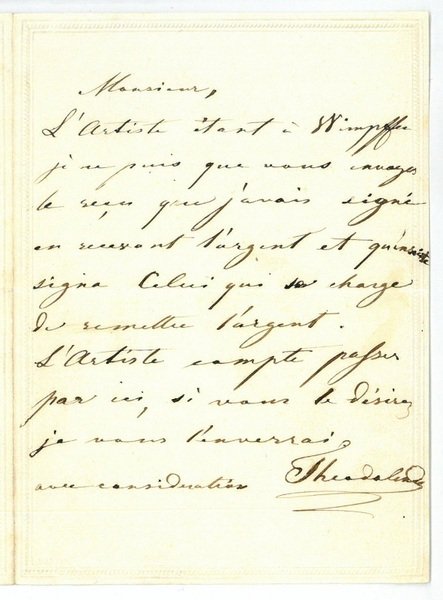 Monsieur,
L'Artiste étant à Wimpffen
je ne puis que vous envoyer
le reçu que j'avais signé
en recevant l'argent et qu'ensuite
signa Celui qui se charge
de remettre l'argent.
L'Artiste compte passer
par ici, si vous le désirez
je vous l'enverrai
avec consideration Theodolinde